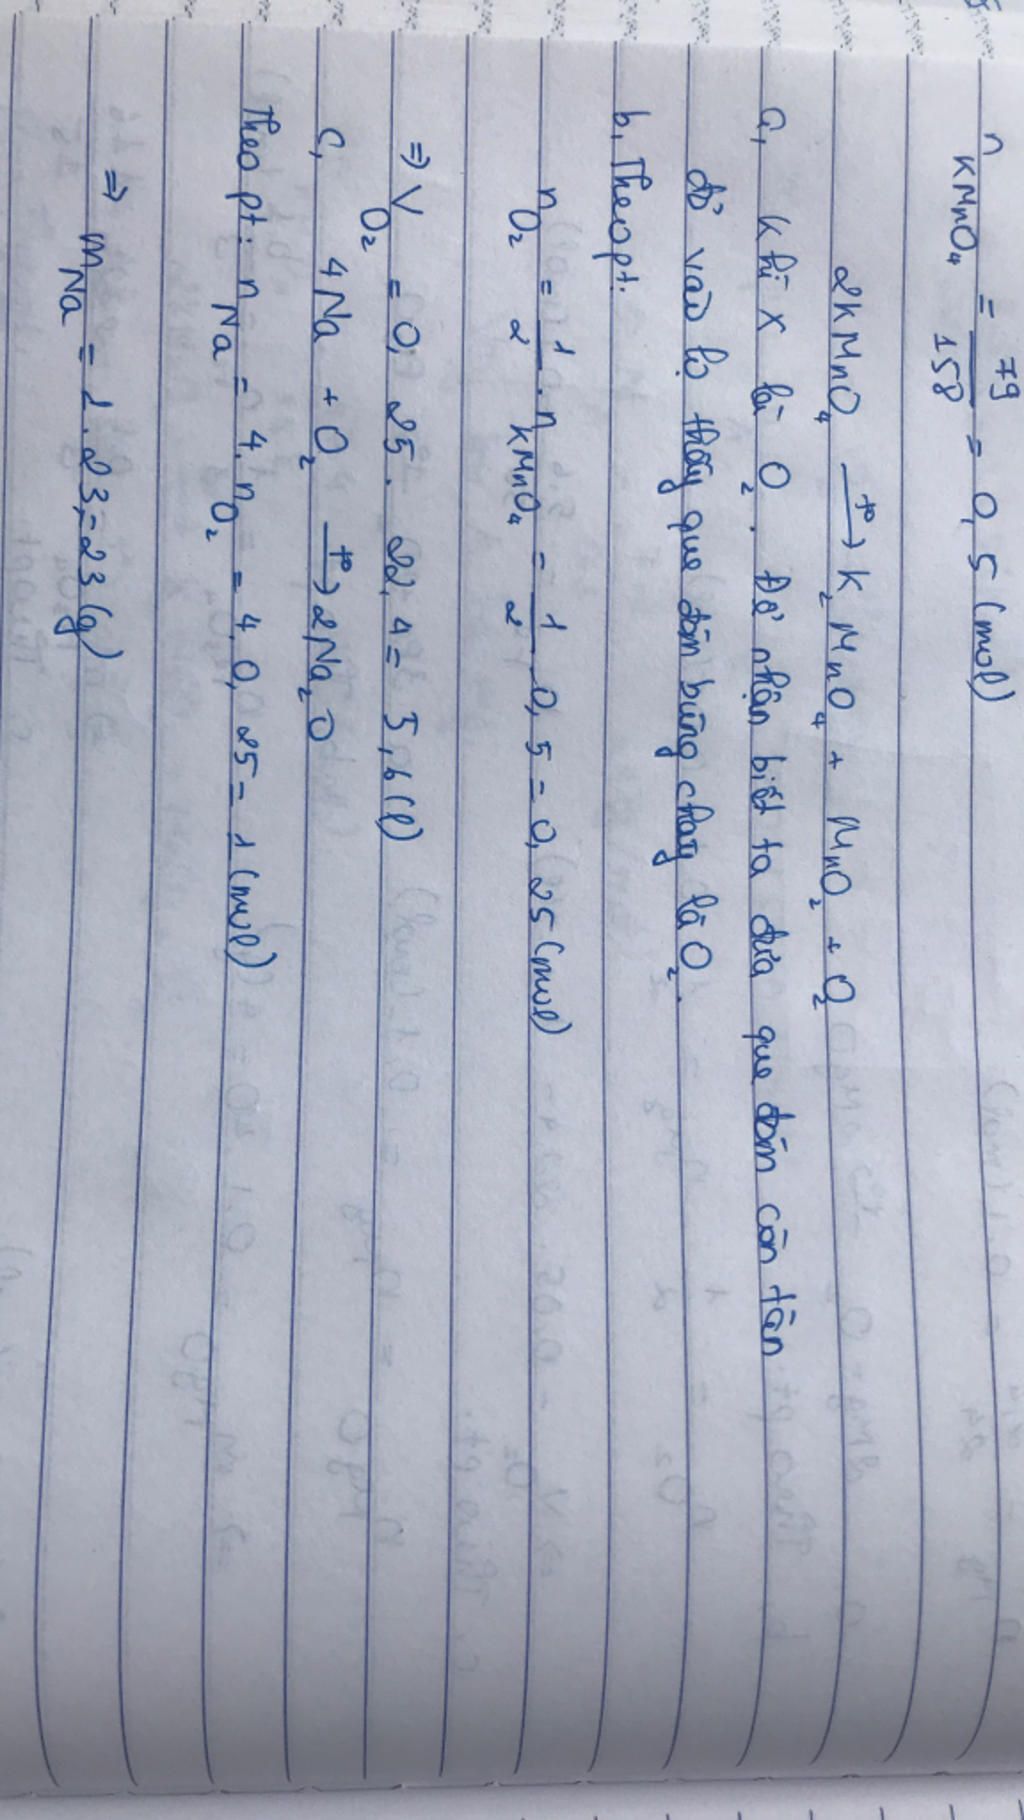 n KMnO₄ = 79/158 = 0,5 (mol)
2KMnO₄ —t°→ K₂MnO₄ + MnO₂ + O₂
a, Khí X là O₂. Để nhận biết ta đưa que đóm còn tàn
đỏ vào lọ thấy que đóm bùng cháy là O₂.
b, Theo pt:
n O₂ = 1/2 . n KMnO₄ = 1/2 . 0,5 = 0,25 (mol)
⇒ V O₂ = 0,25 . 22,4 = 5,6 (l)
c, 4Na + O₂ —t°→ 2Na₂O
Theo pt: n Na = 4. n O₂ = 4.0,25 = 1 (mol)
⇒ m Na = 1.23 = 23 (g)